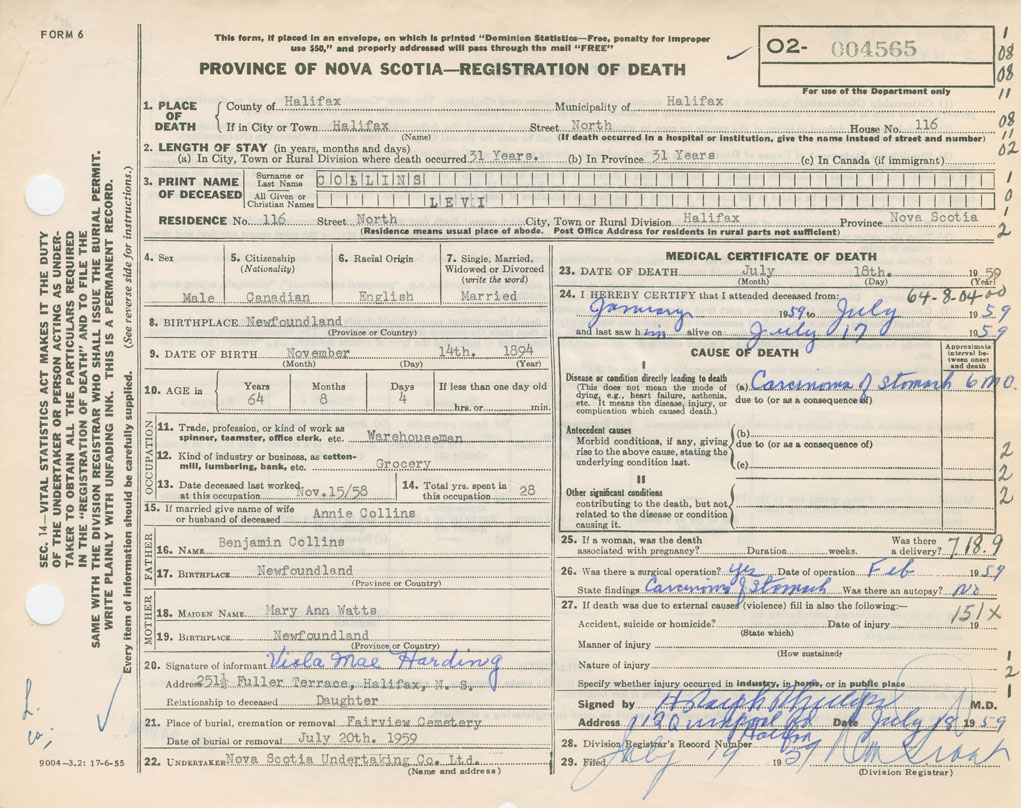 FORM 6
This form, if placed in an envelope, on which is printed "Dominion Statistics—Free, penalty for improper
use $50," and properly addressed will pass through the mail "FREE"
PROVINCE OF NOVA SCOTIA—REGISTRATION OF DEATH
O2- 004565
For use of the Department only
1
08
08
11
08
11
02
1
0
1
2
SEC. 14—VITAL STATISTICS ACT MAKES IT THE DUTY
OF THE UNDERTAKER OR PERSON ACTING AS UNDER-
TAKER TO OBTAIN ALL THE PARTICULARS REQUIRED
IN THE "REGISTRATION OF DEATH" AND TO FILE THE
SAME WITH THE DIVISION REGISTRAR WHO SHALL ISSUE THE BURIAL PERMIT.
WRITE PLAINLY WITH UNFADING INK. THIS IS A PERMANENT RECORD.
Every item of information should be carefully supplied. (See reverse side for instructions.)
1. PLACE OF DEATH
County of Halifax Municipality of Halifax
If in City or Town Halifax Street North House No. 116
(Name) (If death occurred in a hospital or institution, give the name instead of street and number)
2. LENGTH OF STAY (in years, months and days)
(a) In City, Town or Rural Division where death occurred 31 Years. (b) In Province 31 Years (c) In Canada (if immigrant)
3. PRINT NAME OF DECEASED
Surname or Last Name COLLINS
All Given or Christian Names LEVI
RESIDENCE No. 116 Street North City, Town or Rural Division Halifax Province Nova Scotia
(Residence means usual place of abode. Post Office Address for residents in rural parts not sufficient)
4. Sex
Male
5. Citizenship
(Nationality)
Canadian
6. Racial Origin
English
7. Single, Married,
Widowed or Divorced
(write the word)
Married
8. BIRTHPLACE Newfoundland
(Province or Country)
9. DATE OF BIRTH November 14th. 1894
(Month) (Day) (Year)
10. AGE in
Years Months Days If less than one day old
64 8 4
hrs. or min.
OCCUPATION
11. Trade, profession, or kind of work as
spinner, teamster, office clerk, etc. Warehouseman
12. Kind of industry or business, as cotton-
mill, lumbering, bank, etc. Grocery
13. Date deceased last worked
at this occupation Nov.15/58
14. Total yrs. spent in
this occupation 28
15. If married give name of wife
or husband of deceased Annie Collins
FATHER
16. NAME Benjamin Collins
17. BIRTHPLACE Newfoundland
(Province or Country)
MOTHER
18. MAIDEN NAME Mary Ann Watts
19. BIRTHPLACE Newfoundland
(Province or Country)
20. Signature of informant Viola Mae Harding
Address 251½ Fuller Terrace, Halifax, N. S.
Relationship to deceased Daughter
21. Place of burial, cremation or removal Fairview Cemetery
Date of burial or removal July 20th. 1959
22. UNDERTAKER Nova Scotia Undertaking Co. Ltd.
(Name and address)
9004-3.2: 17-6-55
MEDICAL CERTIFICATE OF DEATH
23. DATE OF DEATH July 18th. 1959
(Month) (Day) (Year)
64-8-04-00
24. I HEREBY CERTIFY that I attended deceased from:
January 1959 to July 1959
and last saw him alive on July 17 1959
CAUSE OF DEATH
Approximate
interval be-
tween onset
and death
I
Disease or condition directly leading to death
(This does not mean the mode of
dying, e.g., heart failure, asthenia,
etc. It means the disease, injury, or
complication which caused death.)
(a) Carcinoma of Stomach 6 mo.
due to (or as a consequence of)
Antecedent causes
Morbid conditions, if any, giving
rise to the above cause, stating the
underlying condition last.
(b)
due to (or as a consequence of)
(c)
II
Other significant conditions
contributing to the death, but not
related to the disease or condition
causing it.
2
2
2
25. If a woman, was the death
associated with pregnancy? Duration weeks. Was there
a delivery?
718.9
26. Was there a surgical operation? Yes Date of operation Feb 1959
State findings Carcinoma of Stomach Was there an autopsy? No
27. If death was due to external causes (violence) fill in also the following:—
151X
Accident, suicide or homicide? Date of injury 19
(State which)
Manner of injury
(How sustained)
Nature of injury
Specify whether injury occurred in industry, in home, or in public place
1
2
1
Signed by M.D.
Address Date July 18 1959
Halifax
28. Division Registrar's Record Number
29. Filed July 19 1959
(Division Registrar)